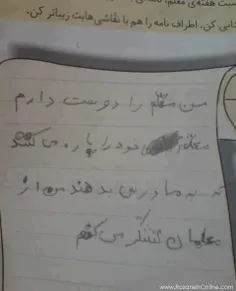 کن. اطراف نامه را هم با نقاشی‌هایت زیباتر کن.
من معلّم را دوست دارم
معلّم خود را پاره می کند
که به ما درس بدهند من از
معلمان تشکّر می کنم
www.RozanehOnline.com